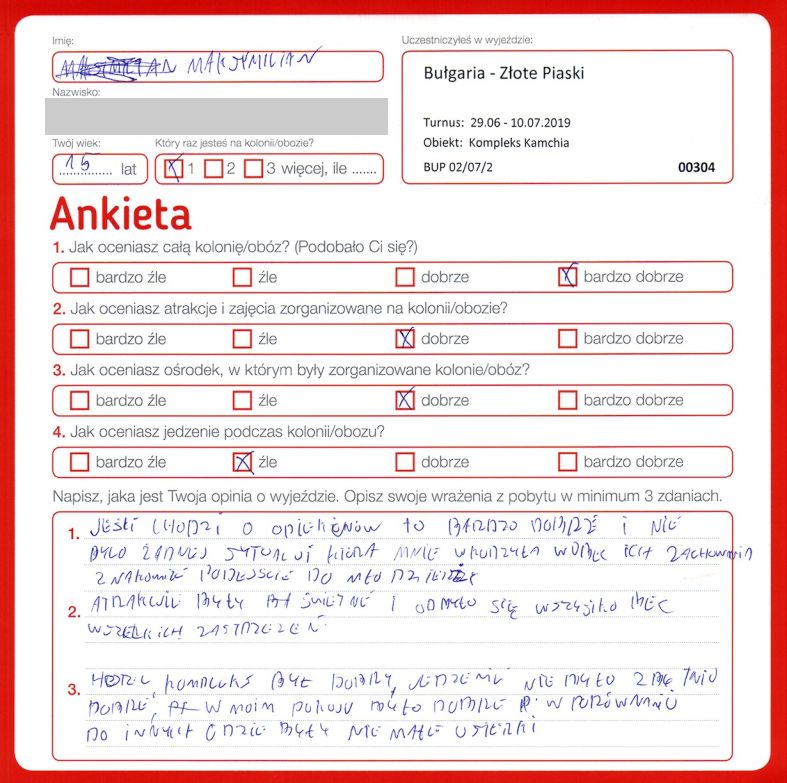 Imię:
Uczestniczyłeś w wyjeździe:
MAKSYMILIAN
Bułgaria - Złote Piaski
Nazwisko:
Turnus: 29.06 - 10.07.2019
Twój wiek:
Który raz jesteś na kolonii/obozie?
Obiekt: Kompleks Kamchia
15 lat
1 2 3 więcej, ile .......
BUP 02/07/2 00304
Ankieta
1. Jak oceniasz całą kolonię/obóz? (Podobało Ci się?)
bardzo źle źle dobrze bardzo dobrze
2. Jak oceniasz atrakcje i zajęcia zorganizowane na kolonii/obozie?
bardzo źle źle dobrze bardzo dobrze
3. Jak oceniasz ośrodek, w którym były zorganizowane kolonie/obóz?
bardzo źle źle dobrze bardzo dobrze
4. Jak oceniasz jedzenie podczas kolonii/obozu?
bardzo źle źle dobrze bardzo dobrze
Napisz, jaka jest Twoja opinia o wyjeździe. Opisz swoje wrażenia z pobytu w minimum 3 zdaniach.
1. JEŚLI CHODZI O OPIEKENÓW TO BARDZO DOBRZE I NIE
BYŁO ŻADNEJ SYTUACJI KTÓRA MNIE WOBEC ICH ZACHOWANIA
ZNAKOMITE PODEJŚCIE DO MŁODZIEŻY
2. ATRAKCJE BYŁY ŚWIETNE I ODBYŁO SIĘ WSZYSTKO BEZ
WSZELKICH ZASTRZEŻEŃ
3. HOTEL, KOMPLEKS BYŁ DOBRY, JEDZENIE NIE BYŁO ZBYTNIO
DOBRE, W MOIM POKOJU BYŁO DOBRZE W PORÓWNANIU
DO INNYCH GDZIE BYŁY NIE MAŁE USTERKI